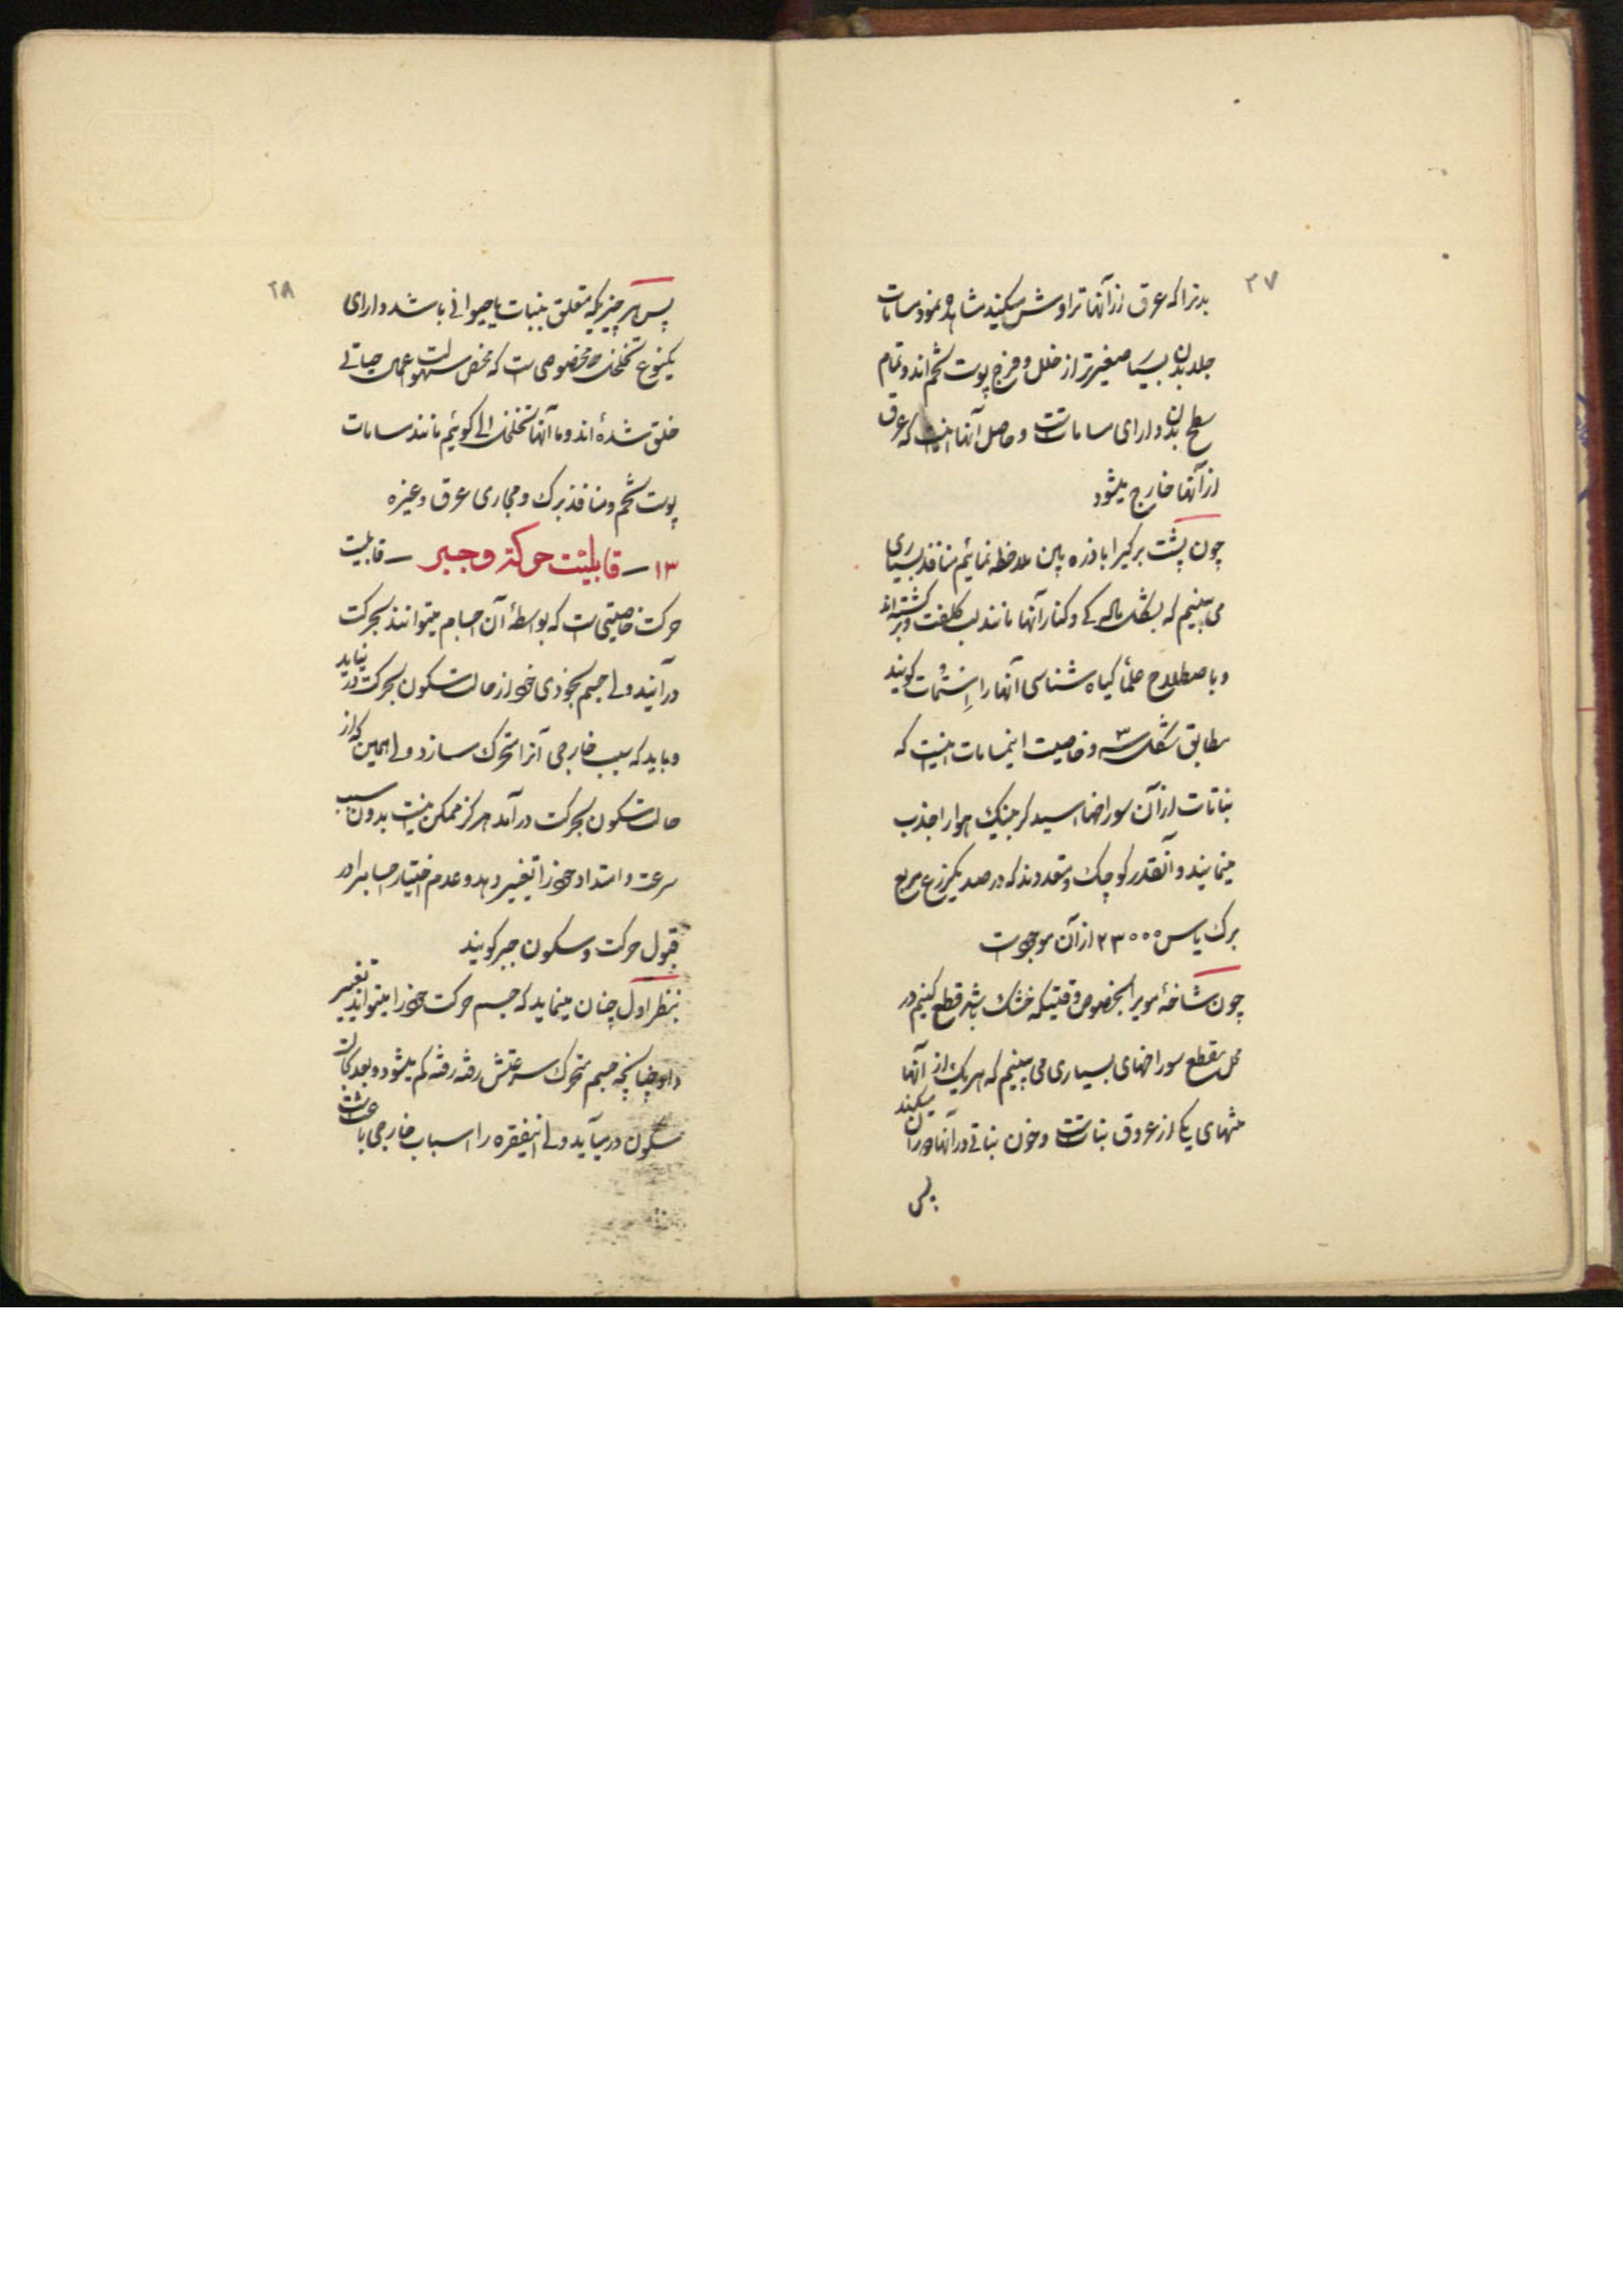 ۲۷
بدنرا که عرق از آنها تراوش میکند مشاهده نمود مسامات
جلد بدن بسیار صغیرتر از خلل و فرج پوست تخم‌اند و تمام
سطح بدن دارای مسامات است و حاصل آنها اینست که عرق
از آنها خارج میشود
چون پشت برگیرا با ذره بین ملاحظه نمائیم منافذ بسیاری
می بینیم که بشکل و کنار آنها مانند لب کلفت و برگشته‌اند
و باصطلاح علمأ گیاه شناسی آنها را اِستُمات گویند
مطابق شکل ۳ و خاصیت اینمسامات اینست که
نباتات از آن سوراخها اسید کربنیک هوا را جذب
مینمایند و آنقدر کوچک و متعددند که در صد یکزرع مربع
برگ یاس ۲۳۰۰۰ از آن موجود است
چون شاخهٔ مو بر الخصوص وقتیکه خشک باشد قطع کنیم در
محل مقطع سوراخهای بسیاری می بینیم که هر یک از آنها
منتهای یکی از عروق نباتست و خون نباتی در آنها دوران میکند
پس
۲۸
پس هر چیزیکه متعلق بنبات یا حیوانی باشد دارای
یکنوع تخلخل مخصوصی است که محض سهولت اعمال حیاتی
خلق شده‌اند و ما آنها تخلخل الی گوئیم مانند مسامات
پوست تخم و منافذ برگ و مجاری عرق و غیره
۱۳ – قابلیّت حرکة و جبر – قابلیت
حرکت خاصیتی است که بواسطهٔ آن اجسام میتوانند بحرکت
در آیند ولی جسم بخودی خود از حالت سکون بحرکت در نیاید
و باید که سبب خارجی آنرا متحرک سازد ولی همین که از
حالت سکون بحرکت درآمد هرگز ممکن نیست بدون سبب
سرعت و امتداد خود را تغییر دهد و عدم اختیار اجسام را در
قبول حرکت و سکون جبر گویند
بنظر اول چنان مینماید که جسم حرکت خود را میتواند تغییر
داد چنانچه جسم متحرک سرعتش رفته رفته کم میشود و بعد بحالت
سکون در میآید ولی اینفقره را اسباب خارجی باعث است